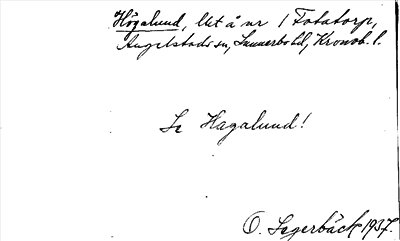 Högalund, lht å nr 1 Fotatorp,
Angelstads sn, Sunnerbo hd, Kronob. l.
Se Hagalund!
O. Sagerbäck 1937.